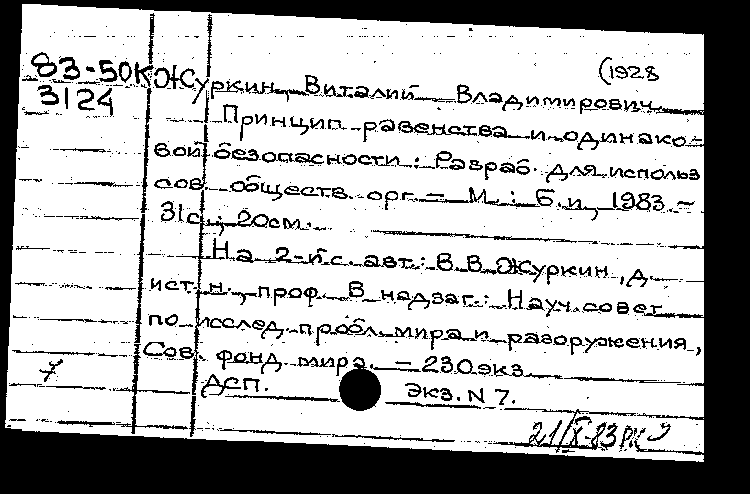 (1928
83-50К Журкин, Виталий Владимирович.
3124
Принцип равенства и одинако-
вой безопасности : Разраб. для использ
сов. обществ. орг. – М. : Б.и., 1983. –
31с.; 20см.
На 2-й с. авт.: В.В. Журкин, д.
ист. н., проф. В надзаг.: Науч. совет
по исслед. пробл. мира и разоружения,
Сов. фонд мира. – 230экз.
7 ДСП. Экз. N 7.
21/X-83